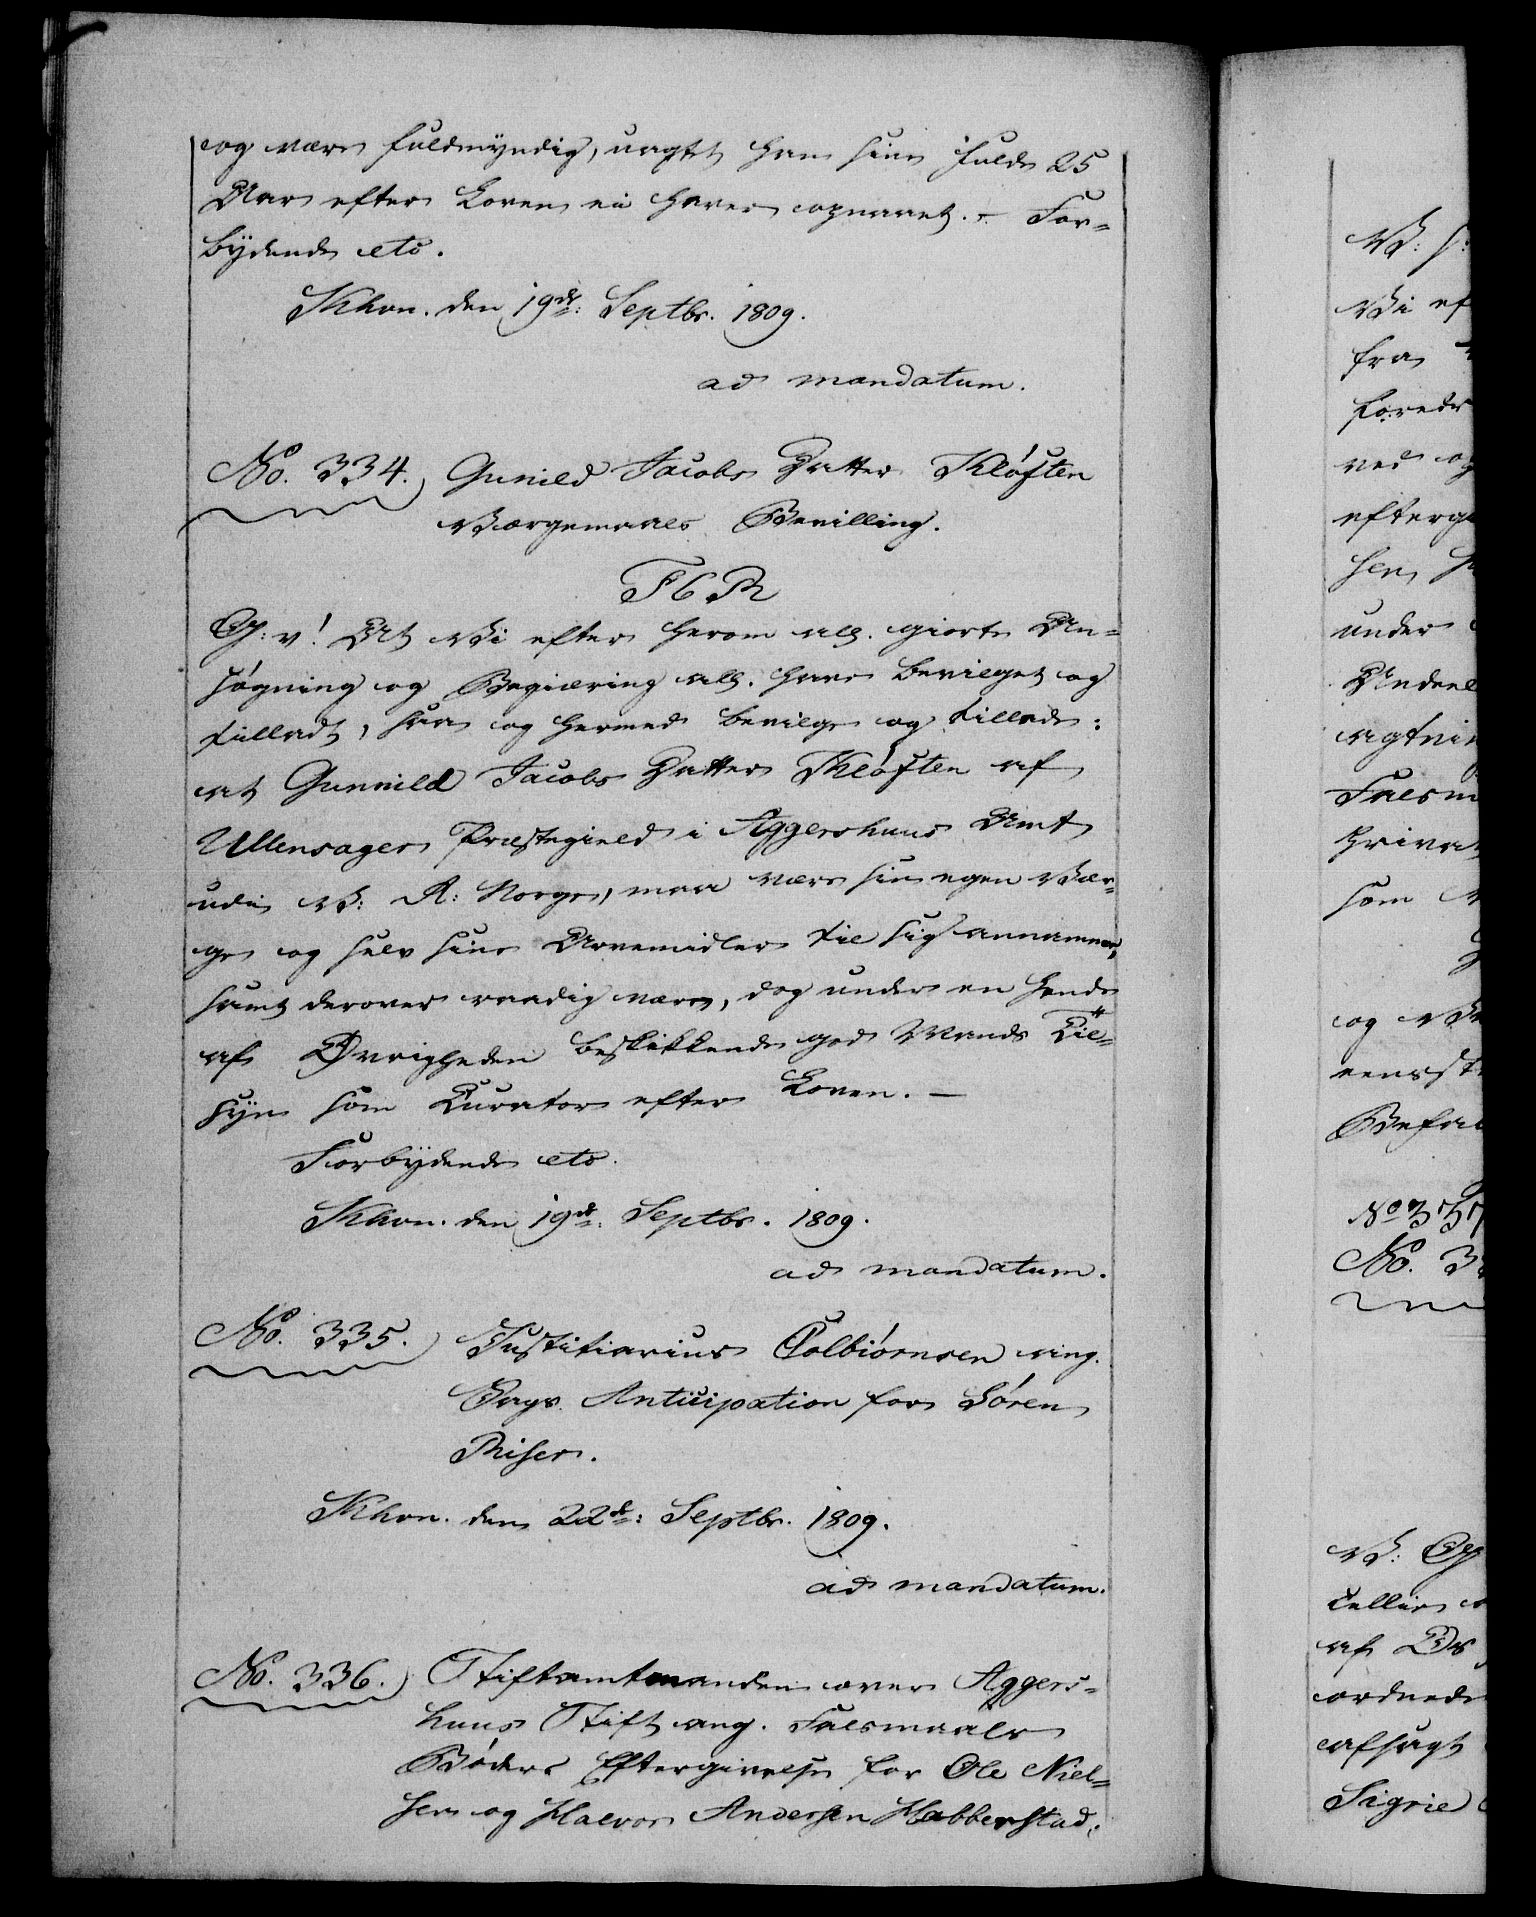 og være fuldmyndig, uagtet han sine fulde 25
Aar efter Loven ei haver opnaaet. - For-
bydende etc.
Khvn. den 19de: Septbr. 1809.
ad mandatum.
No. 334. Gunild Jacobs Datter Kløften
Værgemaals Bevilling.
F6R
G: v! At Vi efter herom all. giorte An-
søgning og Begiæring all. have bevilget og
tilladt, saa og hermed bevilge og tillade:
at Gunnild Jacobs Datter Kløften af
Ullensager Præstegield i Aggershuus Amt
udi V: R: Norge, maa være sin egen Vær-
ge og selv sine Arvemidler til sig annamme,
samt derover raadig være, dog under en hende
af Øvrigheden beskikkende god Mands Til-
syn som Curator efter Loven. -
Forbydende etc.
Khvn. den 19de: Septbr. 1809.
ad mandatum.
No. 335. Justitiarius Colbiørnsen ang.
Anticipation for Søren
Riser.
Khvn. den 22de: Septbr. 1809.
ad mandatum.
No. 336. Stiftamtmanden over Aggers-
huus Stift ang. Leiermaals
Bøders Eftergivelse for Ole Niel-
sen og Halvor Andersen Habberstad.
Vi ef
fra
foredr
ved og
efterg
sen
under
Andeel
agtni
Privat
som
og
Befal
No 337
No. 3
af
ordnede
afsagt
Sigrie